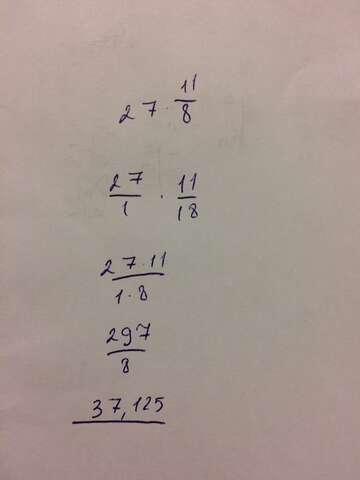 27 · 11/8
27/1 · 11/18
27·11/1·8
297/8
37,125